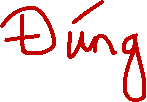 Đúng